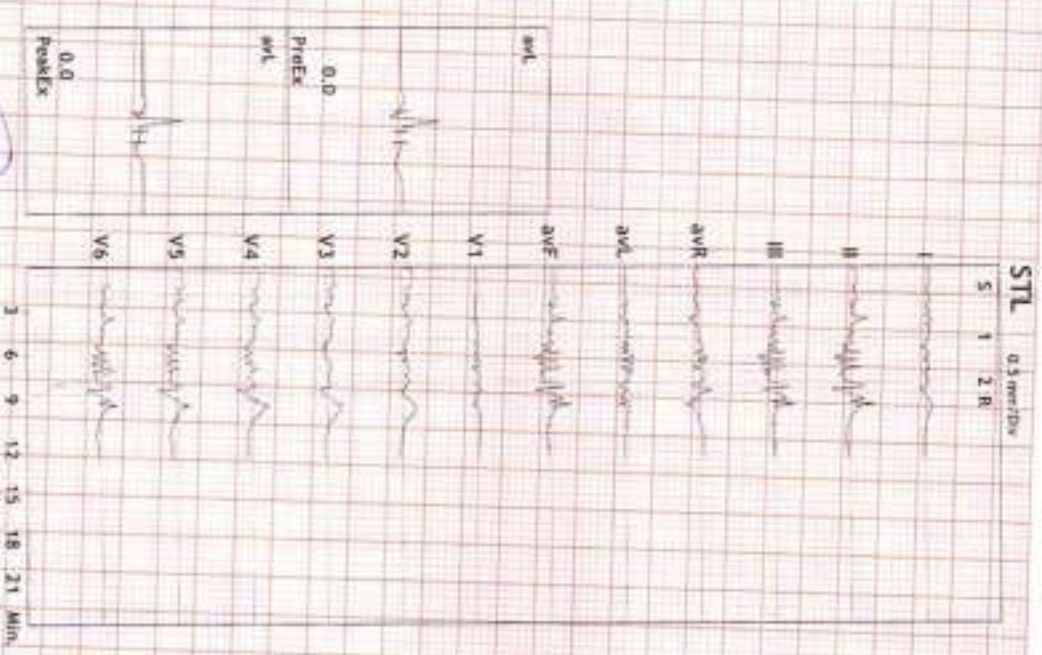 STL 0.5 mm/Div
S 1 2 R
I
II
III
avR
avL
avF
V1
V2
V3
V4
V5
V6
3 6 9 12 15 18 21 Min.
avL
0.0
PreEx
avL
0.0
PeakEx